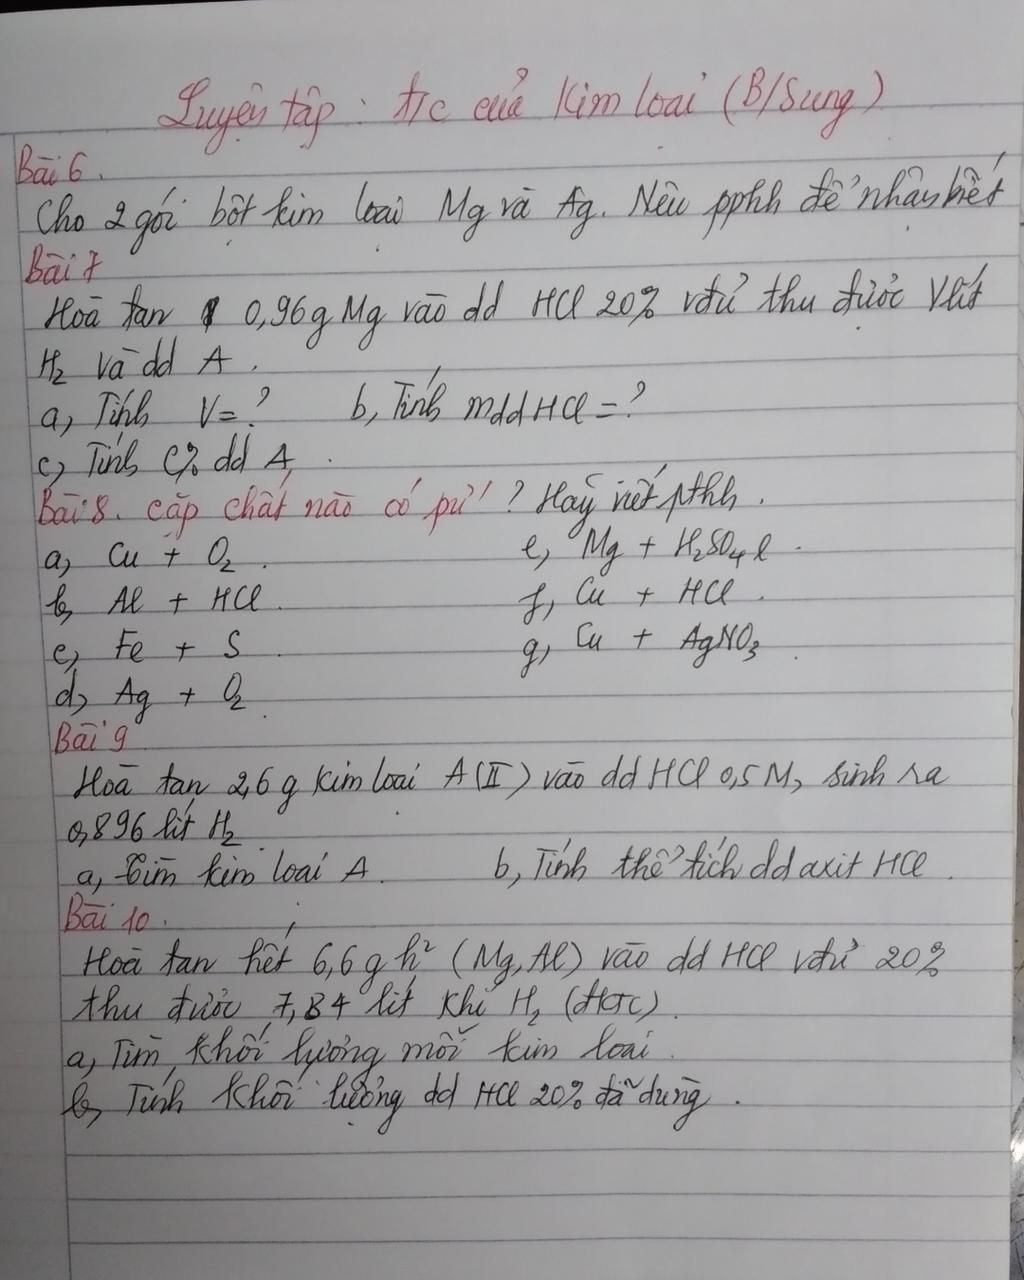 Luyện tập: t/c của Kim loại (B/Sung)
Bài 6.
Cho 2 gói bột kim loại Mg và Ag. Nêu pphh để nhận biết
Bài 7
Hoà tan 0,96g Mg vào dd HCl 20% vđủ thu được V lít
H₂ và dd A.
a, Tính V = ? b, Tính mddHCl = ?
c, Tính C% dd A.
Bài 8. cặp chất nào có pứ ? Hãy viết pthh.
a, Cu + O₂. e, Mg + H₂SO₄ l.
b, Al + HCl. f, Cu + HCl.
c, Fe + S. g, Cu + AgNO₃.
d, Ag + O₂.
Bài 9
Hoà tan 2,6 g kim loại A (II) vào dd HCl 0,5 M, sinh ra
0,896 lít H₂.
a, tìm kim loại A. b, Tính thể tích dd axit HCl.
Bài 10.
Hoà tan hết 6,6g h² (Mg, Al) vào dd HCl vđủ 20%
thu được 7,84 lít khí H₂ (đktc).
a, Tìm khối lượng mỗi kim loại.
b, Tính khối lượng dd HCl 20% đã dùng.